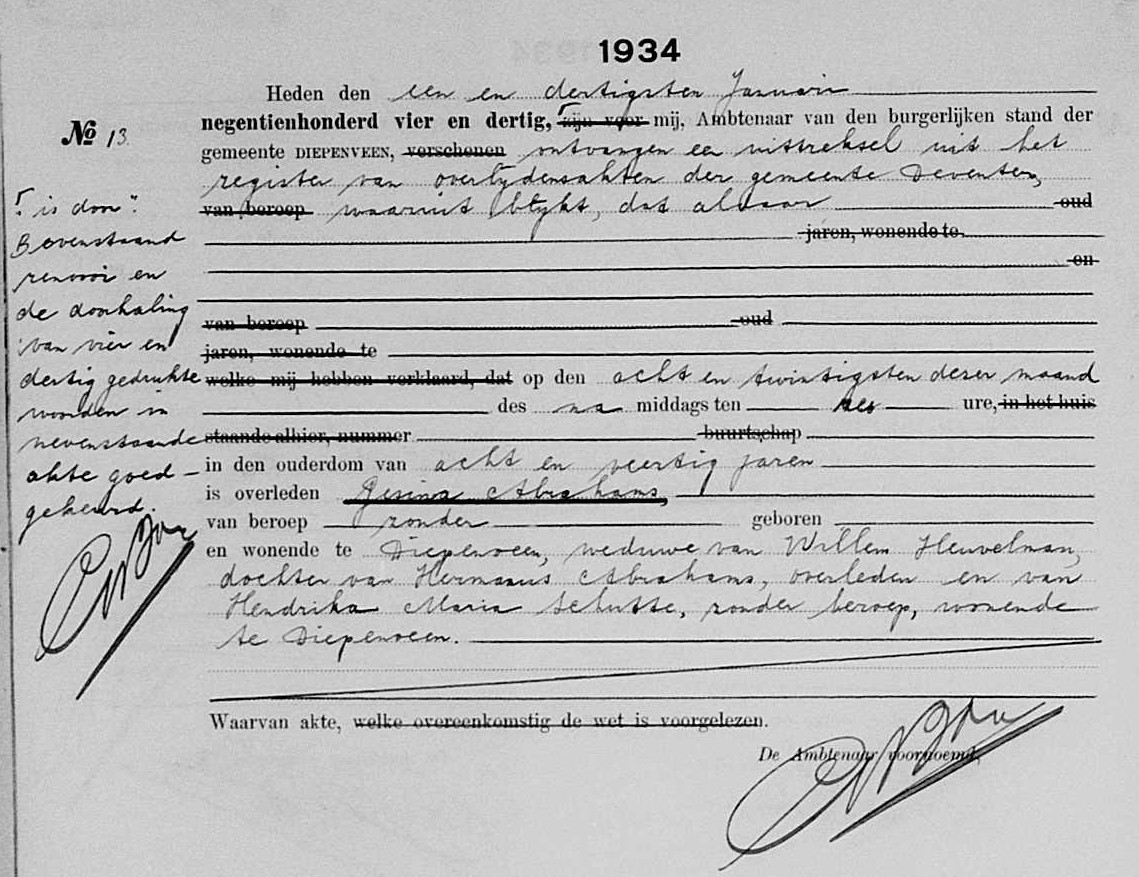 1934
Heden den een en dertigsten Januari
negentienhonderd vier en dertig, zijn voor mij, Ambtenaar van den burgerlijken stand der
gemeente DIEPENVEEN, verschenen ontvangen een uittreksel uit het
register van overlydensakten der gemeente Deventer,
van beroep waaruit blykt, dat aldaar oud
jaren, wonende te
en
van beroep oud
jaren, wonende te
welke mij hebben verklaard, dat op den acht en twintigsten dezer maand
des na middags ten zes ure, in het huis
staande alhier, nummer buurtschap
in den ouderdom van acht en veertig jaren
is overleden Gesina Abrahams,
van beroep zonder geboren
en wonende te Diepenveen, weduwe van Willem Heuvelman,
dochter van Hermanus Abrahams, overleden en van
Hendrika Maria Schutte, zonder beroep, wonende
te Diepenveen.
Waarvan akte, welke overeenkomstig de wet is voorgelezen.
De Ambtenaar voornoemd,
No 13.
"is door".
Bovenstaand
renvooi en
de doorhaling
van vier en
dertig gedrukte
woorden in
nevenstaande
akte goed-
gekeurd.